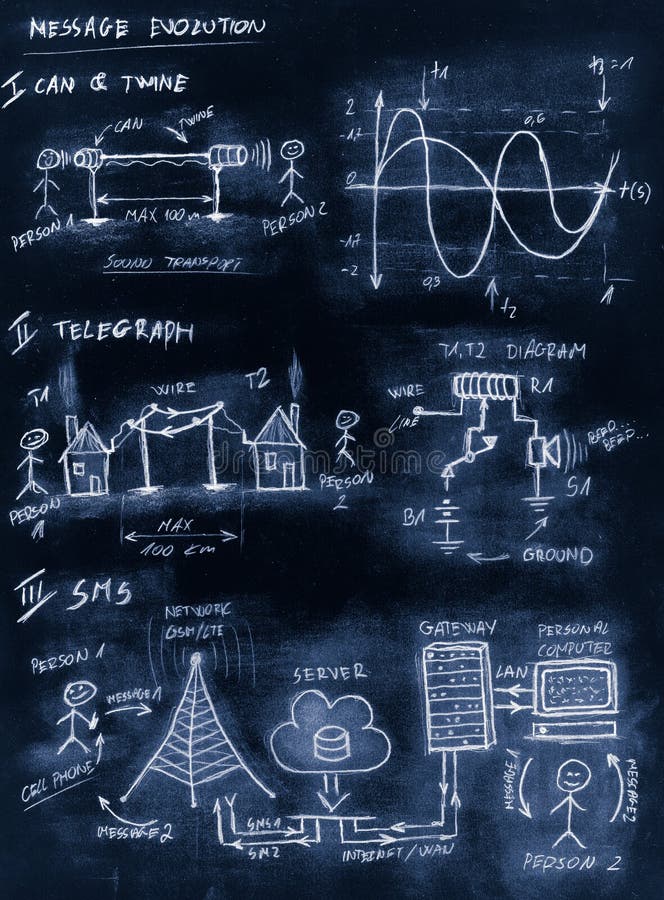 MESSAGE EVOLUTION
I CAN & TWINE
CAN
TWINE
PERSON 1
MAX 100 m
PERSON 2
SOUND TRANSPORT
t1
t3=1
2
1,7
0,6
0
t(s)
-1,7
-2
0,3
t2
II TELEGRAPH
T1
WIRE
T2
PERSON 1
PERSON 2
MAX
100 km
T1,T2 DIAGRAM
WIRE
LINE
R1
BEEP...
BEEP...
S1
B1
GROUND
III SMS
NETWORK
GSM/LTE
PERSON 1
MESSAGE 1
CELL PHONE
MESSAGE 2
SERVER
GATEWAY
PERSONAL
COMPUTER
LAN
SMS1
SM2
INTERNET/WAN
MESSAGE 1
MESSAGE 2
PERSON 2
dreamstime